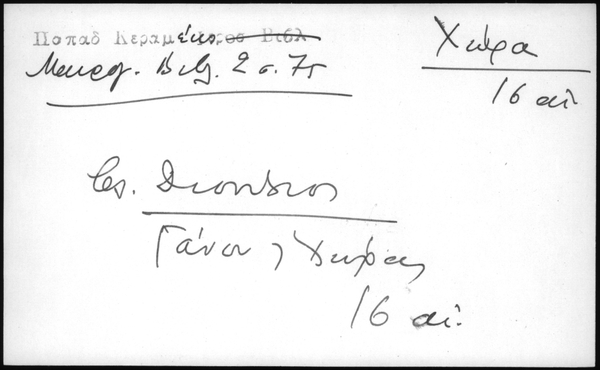 Παπαδ Κεραμέως Βιβλ
Μαυρογ. Βιβ. 2 σ. 75
Χώρα
16 αἰ.
Διονύσιος
Γάνου, Χώρας
16 αἰ.